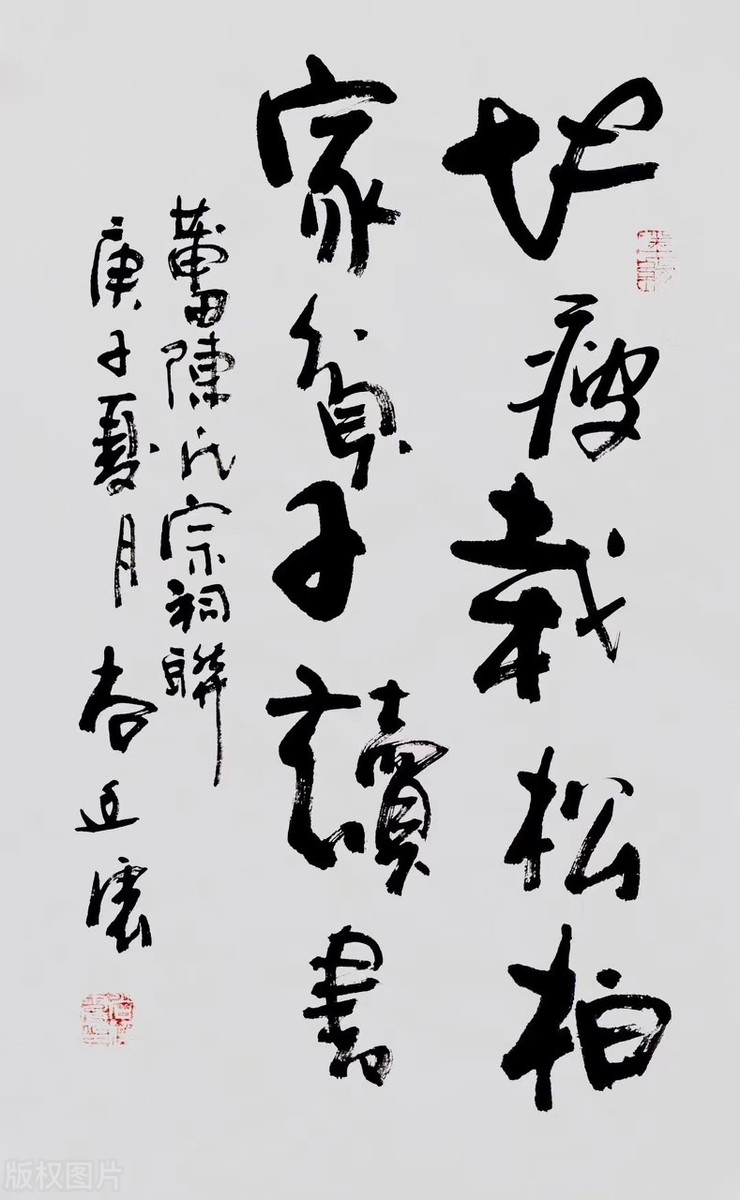 地瘦栽松柏
家貧子讀書
莆田陳氏宗祠聯
庚子夏月
版权图片